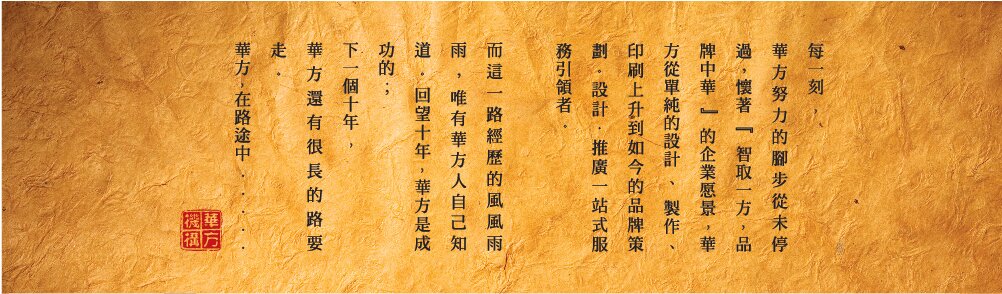 每一刻，
華方努力的腳步從未停
過，懷著『智取一方，品
牌中華』的企業愿景，華
方從單純的設計、製作、
印刷上升到如今的品牌策
劃．設計．推廣一站式服
務引領者．
而這一路經歷的風風雨
雨，唯有華方人自己知
道．回望十年，華方是成
功的；
下一個十年，
華方還有很長的路要
走．
華方，在路途中．．．．．
華方
機構